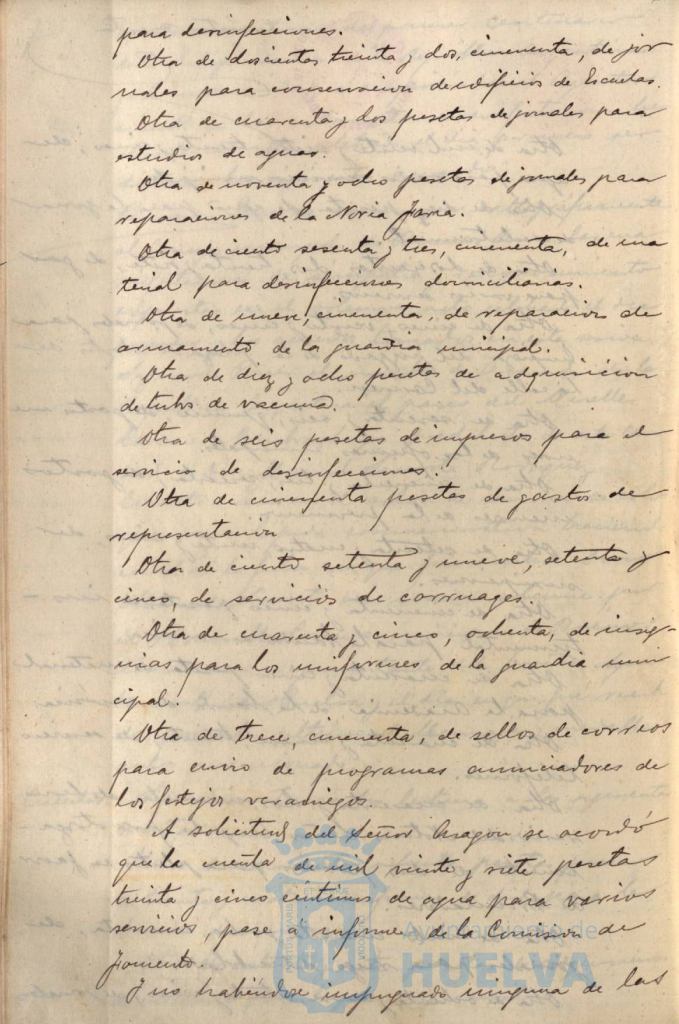 para desinfecciones.
Otra de doscientas treinta y dos, cincuenta, de jor
nales para conservacion de edificios de Escuelas.
Otra de cuarenta y dos pesetas de jornales para
estudios de aguas.
Otra de noventa y ocho pesetas de jornales para
reparaciones de la Noria
Otra de ciento sesenta y tres, cincuenta, de ma
terial para desinfecciones domiciliarias.
Otra de nueve, cincuenta, de reparacion de
armamento de la guardia municipal.
Otra de diez y ocho pesetas de adquisicion
de tubos de vacuna.
Otra de seis pesetas de impresos para el
servicio de desinfecciones.
Otra de cincuenta pesetas de gastos de
representacion
Otra de ciento setenta y nueve, setenta y
cinco, de servicios de carruages.
Otra de cuarenta y cinco, ochenta, de insig-
nias para los uniformes de la guardia muni
cipal.
Otra de trece, cincuenta, de sellos de correos
para envio de programas anunciadores de
los festejos veraniegos.
A solicitud del Señor Aragon se acordó
que la cuenta de mil veinte y siete pesetas
treinta y cinco céntimos de agua para varios
servicios, pase á informe de la Comision de
Fomento.
Y no habiéndose impugnado ninguna de las
Ayuntamiento de
HUELVA